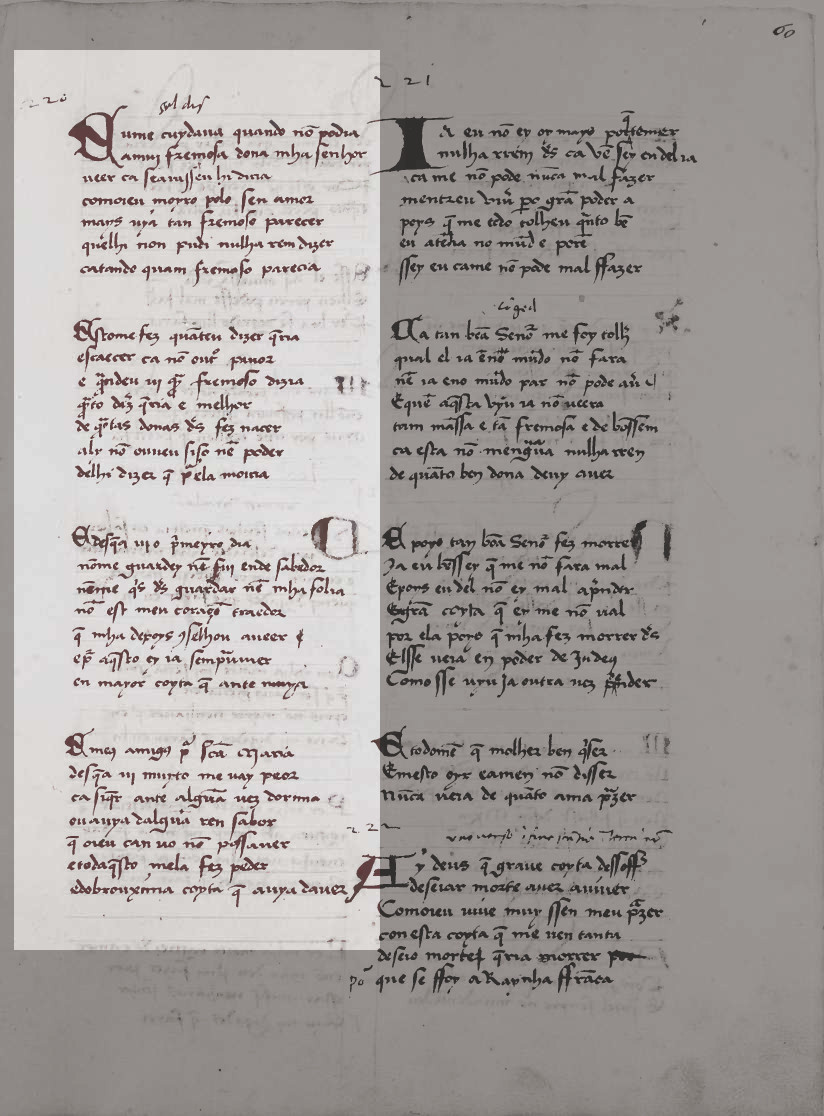 220
Q ume cuydaua quando nō podia
a amui fremosa dona mha senhor
ueer ca sea uisseu hi diria
comoieu moyro polo sen amor
mays uya tan fremoso parecer
quelhi non pudi nulha ren dizer
catando quam fremoso parecia
E stome fez quāteu dizer q̄ria
escaecer ca nō out̄ pauor
e q̄ndeu ui q̄ fremoso dizia
q̄to daq̄ q̄ria e melhor
de q̄tas donas d̄s fez nacer
aly nō ouueu siso nē poder
delhi dizer q̄ p̄ ela moiria
E desq̄a uio p̄meyro dia
nōme guardey nē fuy ende sabedor
nēme q̄s d̄s guardar nē mha folia
nō est meu coraçō traedor
q̄ mha depoys 9selhou a ueer
ep̄ aq̄sto ey ia semp̄ uiuer
en mayor coyta q̄ ante
E meus amigos p̄ scā Maria
desq̄a ui muyto me uay peor
ca siq̄r ante algūa uez dormia
ou auya dalgūa ren sabor
q̄ oieu can uo nō possauer
etodaq̄sto mela fez perder
edobrouxi mia coyta q̄ auya dauer
60
221
I a eu nō ey or mayo poq̄ temer
nulha rrem d̄s ca bē sey en del ia
ca me nō pode nūca mal fazer
mentreu uiu' p̄o grā poder a
poys q̄ me todo tolheu q̄nto bē
eu atēdia no mūd e porē
ssey eu came nō pode mal ffazer
C a tan bōa Senō me foy tolh'
qual el ia ēno mūdo nō fara
nē ia eno mūdo par nō pode au'
E quē aq̄sta uyu ia nō ueera
tam māssa e tā fremosa e de bō ssem
ca esta nō menguā nulha rren
de quāto ben dona deuy auer
E poys tan bōa Senō fez morrer
Ja eu bē ssey q̄ me nō fara mal
E poys eu del nō ey mal a p̄nder
E grā coyta q̄ ey me nō ual
por ela poys q̄ mha fez morrer d̄s
El sse ueia en poder de Judeus
Como sse uyu Ja outra uez p̄nder
E todomē q̄ molher ben q̄ser
E mesto oyr eamen nō disser
Nūca ueia de quāto ama p̄zer
222
A y deus q̄ graue coyta de ssoffr'
deseiar morte auer auiuer
Comoieu uiue muy ssen meu p̄zer
con esta coyta q̄ me uen tanta
deseio morte q̄ria morrer
por que se ffoy a Raynha ffrāca